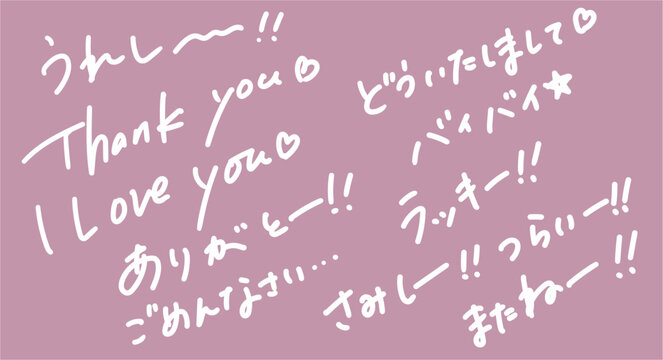 うれし〜〜!!
Thank you♡
I Love you♡
ありがとー!!
ごめんなさい...
どういたしまして♡
バイバイ★
ラッキー!!
さみしー!!
つらいー!!
またねー!!